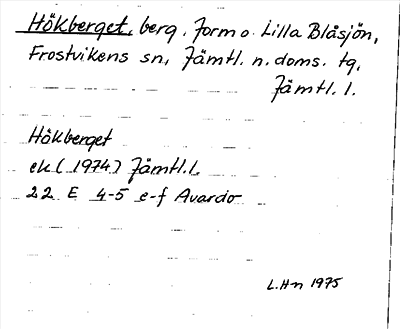 Hökberget, berg. Form o. Lilla Blåsjön,
Frostvikens sn, Jämtl. n. doms. tg,
Jämtl. l.
Hökberget
ek (1974) Jämtl. l.
22 E 4-5 e-f Avardo
L.Hn 1975